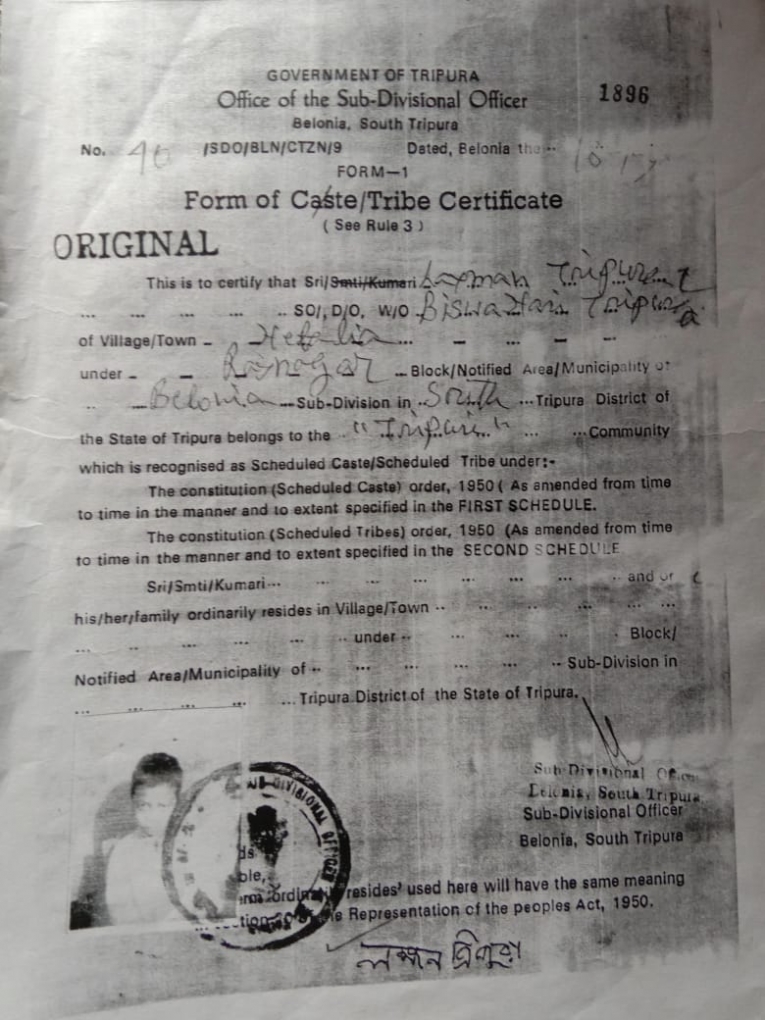 GOVERNMENT OF TRIPURA
Office of the Sub-Divisional Officer
1896
Belonia, South Tripura
No. /SDO/BLN/CTZN/9 Dated, Belonia the
FORM—1
Form of Caste/Tribe Certificate
( See Rule 3 )
ORIGINAL
This is to certify that Sri/Smti/Kumari Laxman Tripura
... ... ... ... .. SO/, D/O, W/O Biswa Hari Tripura
of Village/Town – ... – ... – ...
under – – Rajnagar – Block/Notified Area/Municipality of
.. — Belonia — Sub-Division in .. South ... Tripura District of
the State of Tripura belongs to the .. "Tripuri" ... ... Community
which is recognised as Scheduled Caste/Scheduled Tribe under:-
The constitution (Scheduled Caste) order, 1950 ( As amended from time
to time in the manner and to extent specified in the FIRST SCHEDULE.
The constitution (Scheduled Tribes) order, 1950 (As amended from time
to time in the manner and to extent specified in the SECOND SCHEDULE
Sri/Smti/Kumari... ... ... ... ... ... .. and or
his/her/family ordinarily resides in Village/Town .. .. .. ... ...
... .. ... ... .. under .. ... ... .. Block/
Notified Area/Municipality of .. ... ... ... ... .. Sub-Division in
... ... ... ... ... Tripura District of the State of Tripura.
Sub-Divisional Officer
Belonia, South Tripura
Sub-Divisional Officer
Belonia, South Tripura
SUB-DIVISIONAL OFFICER
ds
ble,
resides' used here will have the same meaning
Representation of the peoples Act, 1950.
লক্ষন ত্রিপুরা